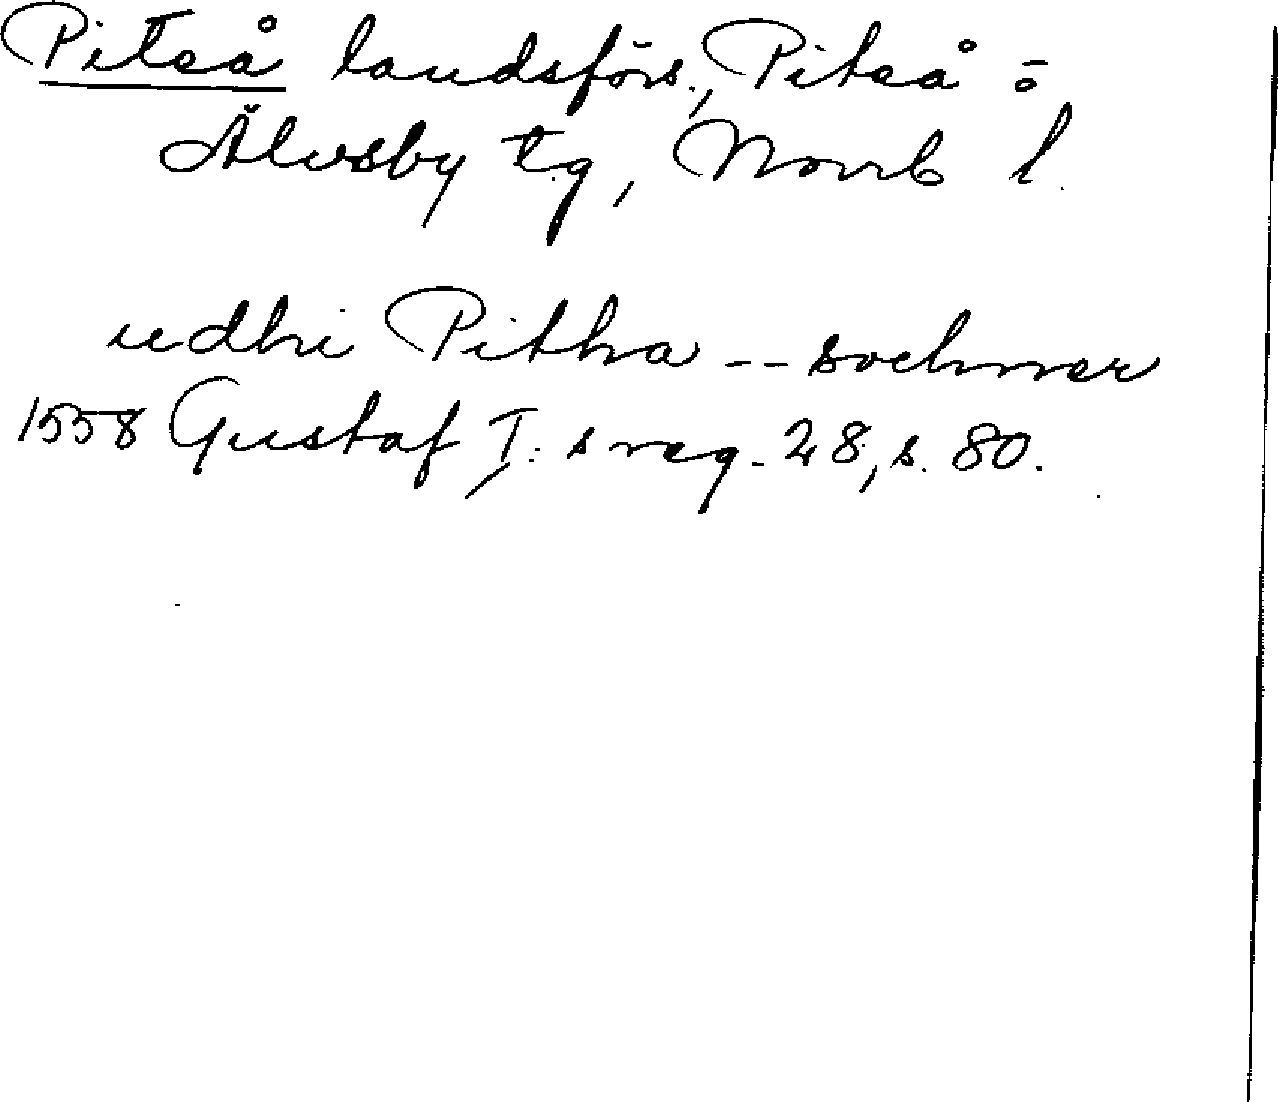 Piteå landsförs., Piteå o
Älvsby tg, Norrb l.
udhi Pitha -- sochnner
1558 Gustaf I:s reg. 28, s. 80.